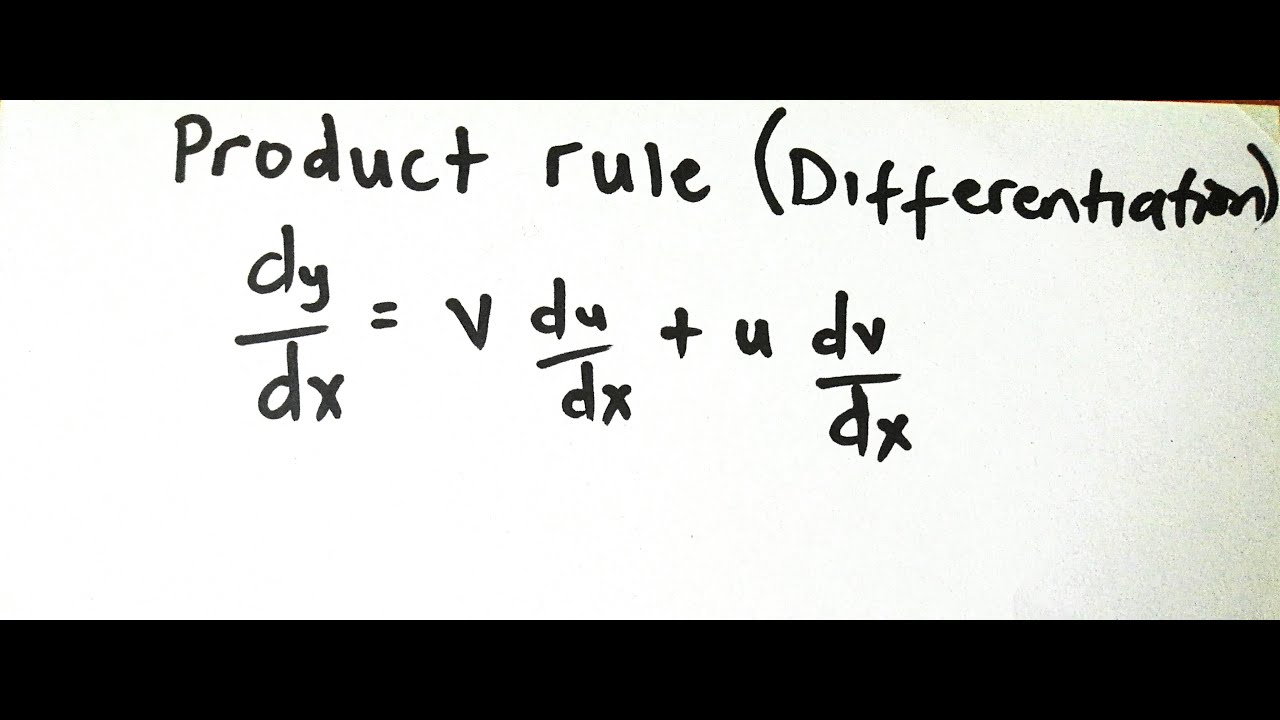 Product rule (Differentiation)
dy/dx = v du/dx + u dv/dx